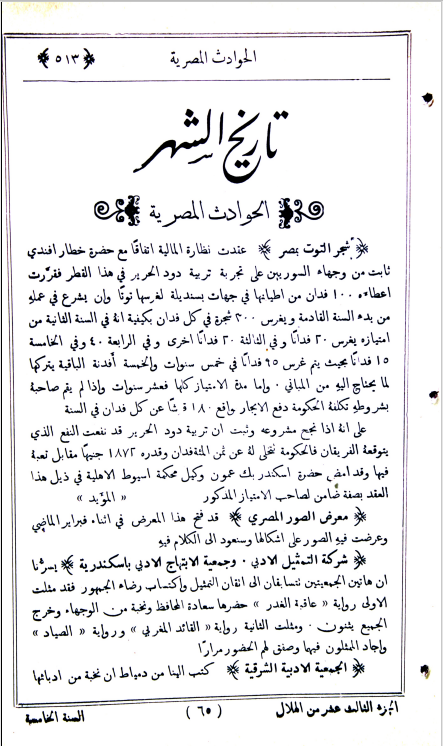 الحوادث المصرية
٥١٣
تاريخ الشهر
الحوادث المصرية
شجر التوت بمصر عقدت نظارة المالية اتفاقًا مع حضرة خطار افندي
ثابت من وجهاء السوريين على تجربة تربية دود الحرير في هذا القطر فقررت
اعطاءه ١٠٠ فدان من اطيانها في جهات بسنديلة لغرسها توتًا وان يشرع في عمله
من بدء السنة القادمة ويغرس ٢٠٠ شجرة في كل فدان بكيفية انهُ في السنة الثانية من
امتيازه يغرس ٢٠ فدانًا وفي الثالثة ٢٠ فدانًا اخرى وفي الرابعة ٤٠ وفي الخامسة
١٥ فدانًا بحيث يتم غرس ٩٥ فدانًا في خمس سنوات والخمسة أفدنة الباقية يتركها
لما يحتاج اليهِ من المباني . واما مدة الامتياز كلها فعشر سنوات واذا لم يقم صاحبهُ
بشروطهِ تكلفهُ الحكومة دفع الايجار واقع ١٨٠ قرشًا عن كل فدان في السنة
على انهُ اذا نجح مشروعه وثبت ان تربية دود الحرير قد نفعت النفع الذي
يتوقعهُ الفريقان فالحكومة تتخلى لهُ عن ثمن المئة فدان وقدره ١٨٧٢ جنيهًا مقابل تعبهِ
فيها وقد امضى حضرة اسكندر بك عمون وكيل محكمة اسيوط الاهلية في ذيل هذا
العقد بصفة ضامن لصاحب الامتياز المذكور « المؤيد »
معرض الصور المصري قد فتح هذا المعرض في اثناء فبراير الماضي
وعرضت فيهِ الصور على اشكالها وسنعود الى الكلام فيهِ
شركة التمثيل الادبي . وجمعية الابتهاج الادبي باسكندرية يسرنا
ان هاتين الجمعيتين تتسابقان الى اتقان التمثيل واكتساب رضاء الجمهور فقد مثلت
الاولى رواية « عاقبة الغدر » حضرها سعادة المحافظ ونخبة من الوجهاء وخرج
الجميع يثنون . ومثلت الثانية رواية « القائد المغربي » ورواية « الصياد »
واجاد الممثلون فيها وصفق لهم الحضور مرارًا
الجمعية الادبية الشرقية كتب الينا من دمياط ان نخبة من ادبائها
الجزء الثالث عشر من الهلال
( ٦٥ )
السنة الخامسة